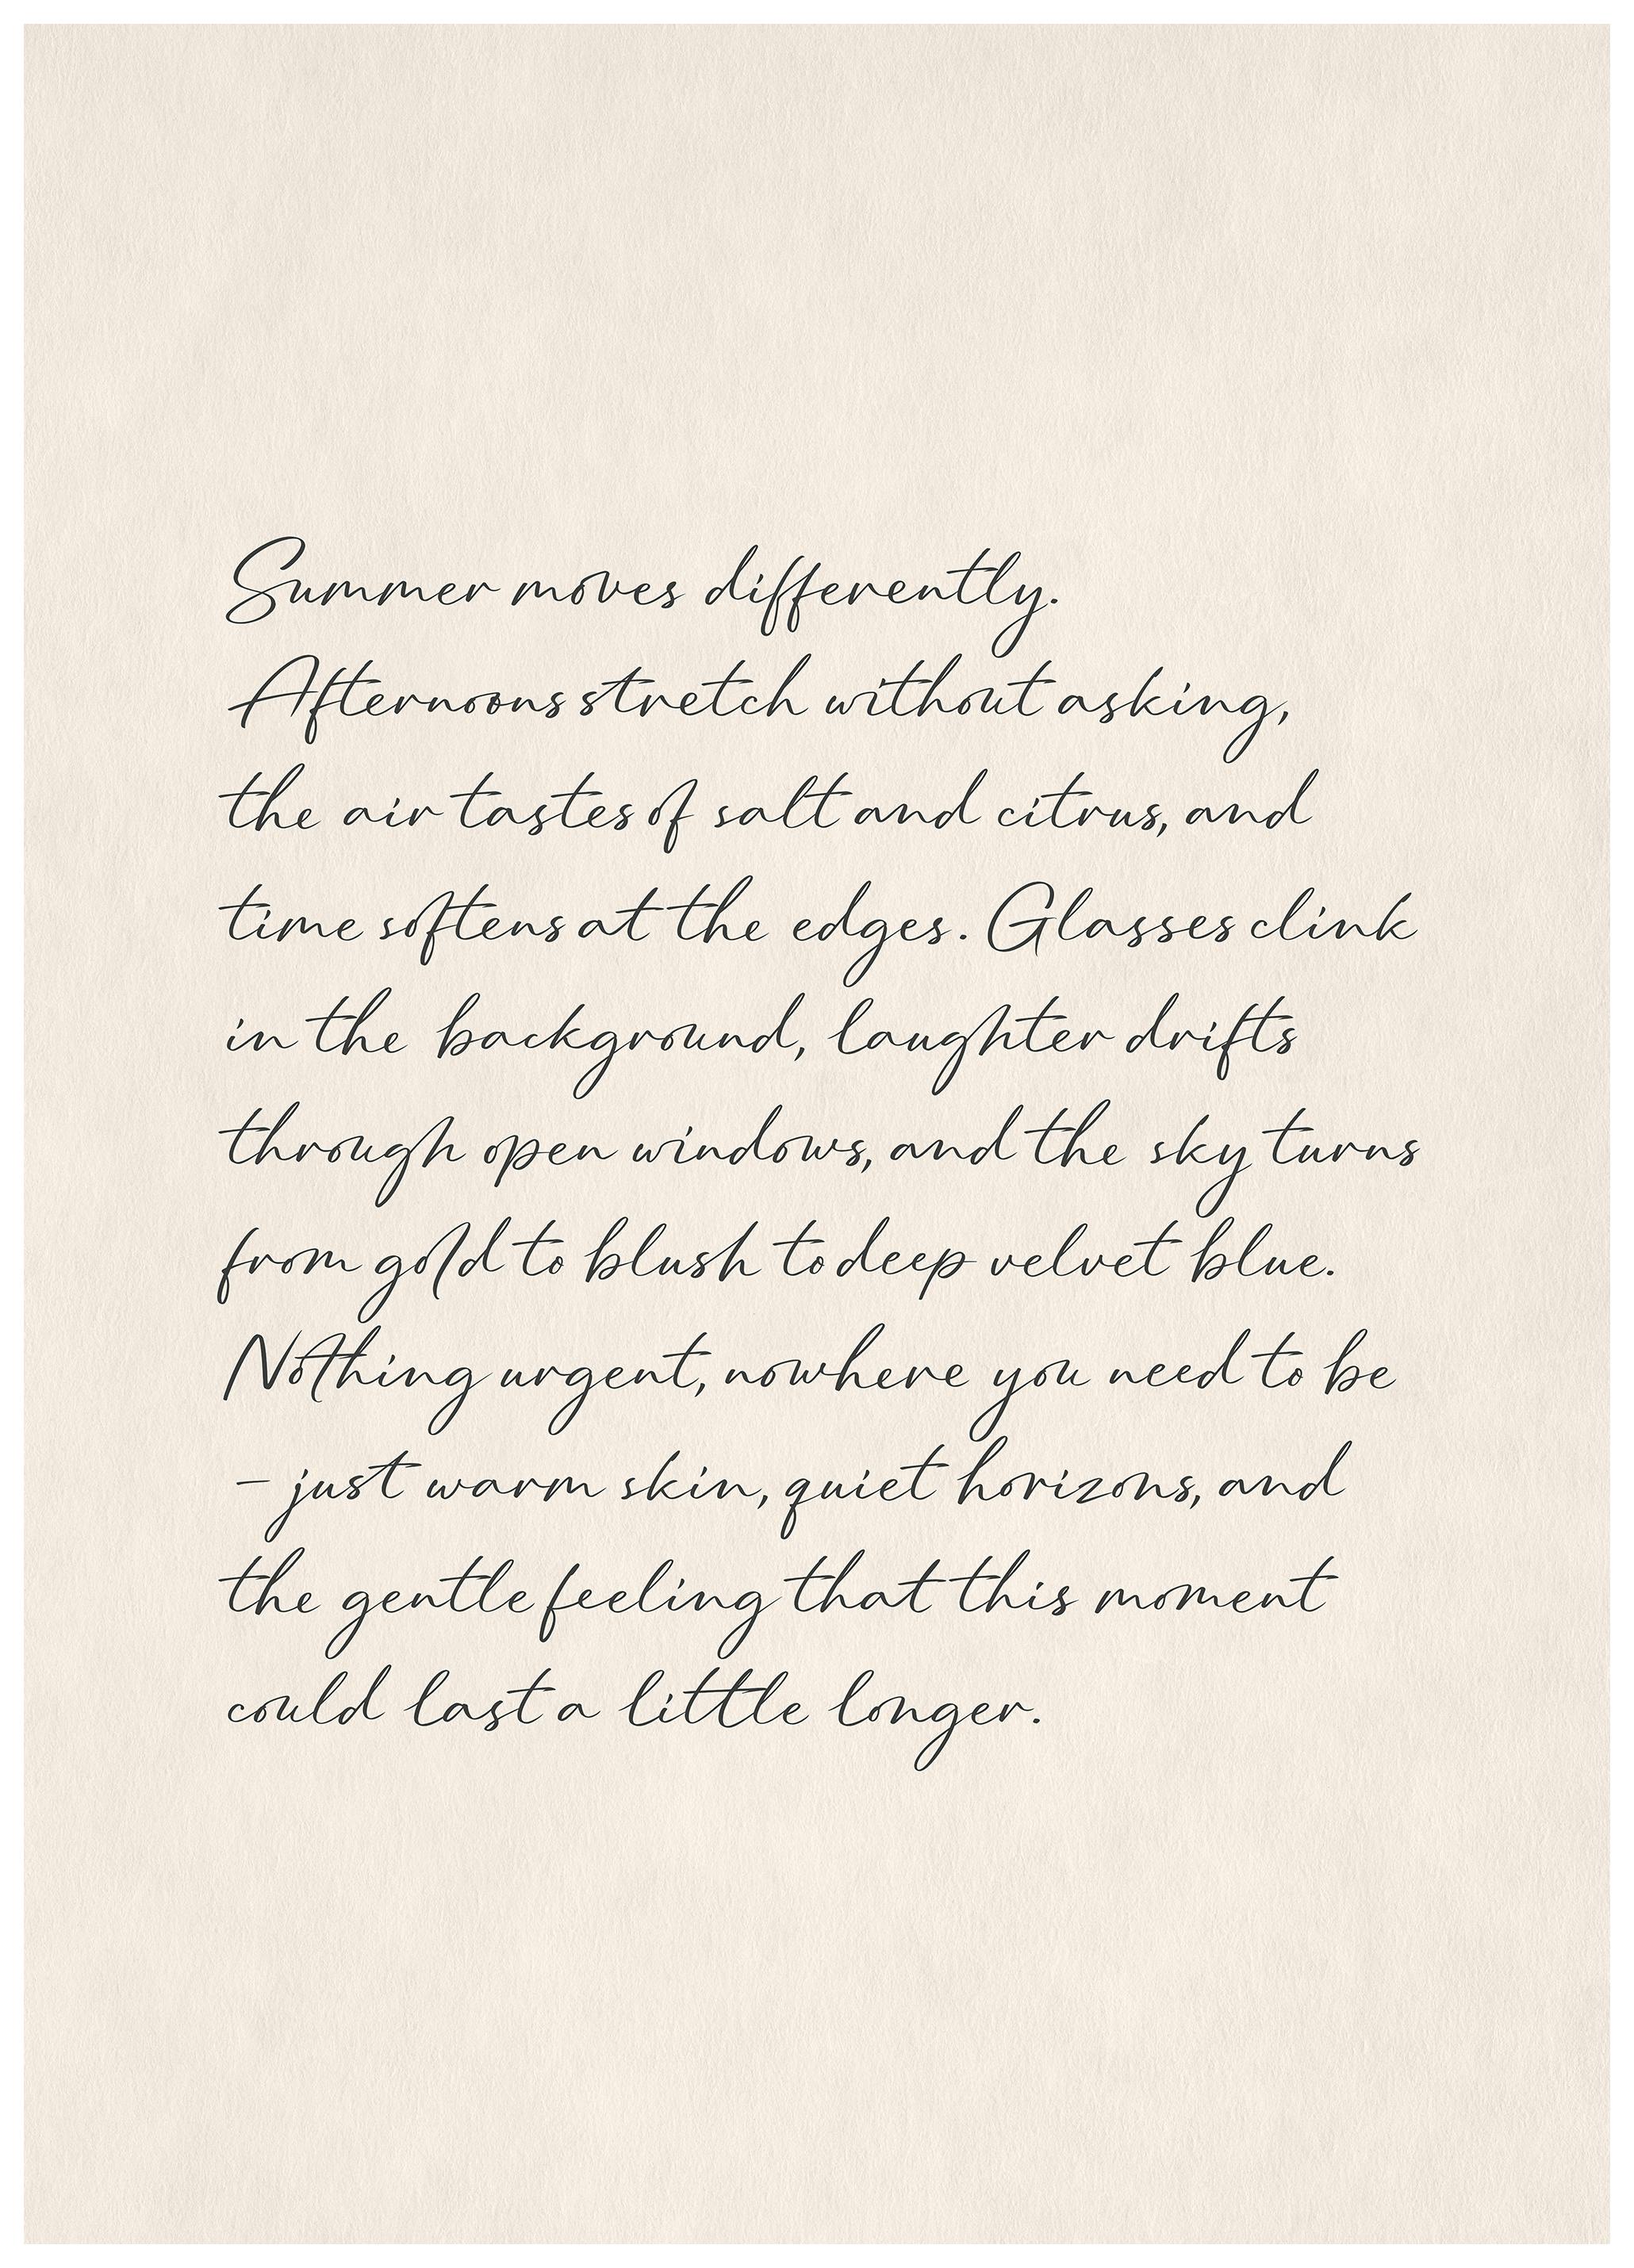 Summer moves differently.
Afternoons stretch without asking,
the air tastes of salt and citrus, and
time softens at the edges. Glasses clink
in the background, laughter drifts
through open windows, and the sky turns
from gold to blush to deep velvet blue.
Nothing urgent, nowhere you need to be
– just warm skin, quiet horizons, and
the gentle feeling that this moment
could last a little longer.